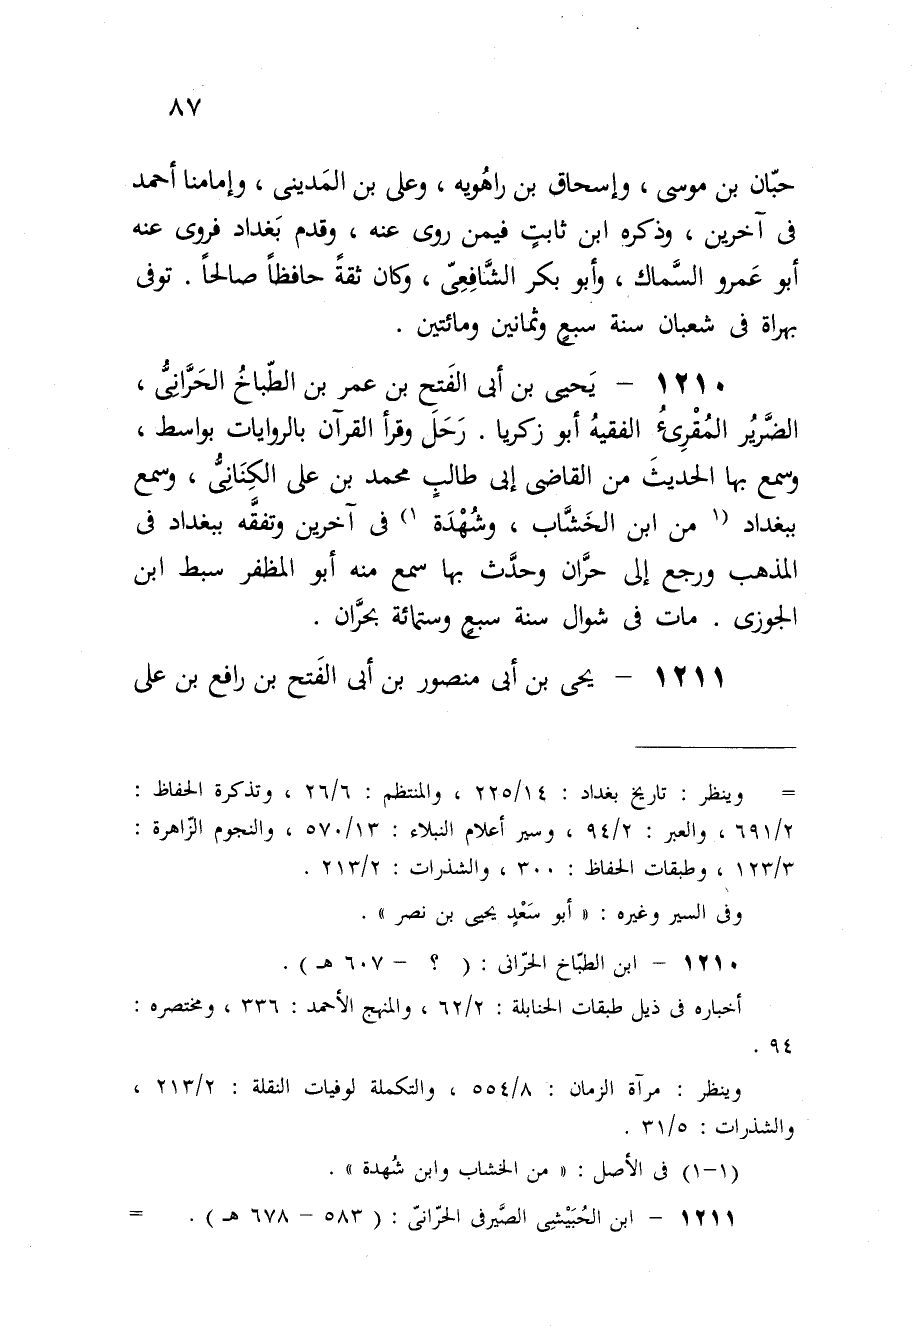 ٨٧
حبّان بن موسى ، وإسحاق بن راهُويه ، وعلى بن المَدينى ، وإمامنا أحمد
فى آخرين ، وذكره ابن ثابتٍ فيمن روى عنه ، وقدم بَغداد فروى عنه
أبو عَمرو السَّماك ، وأبو بكر الشَّافِعِىّ ، وكان ثقةً حافظاً صالحاً . توفى
بهراة فى شعبان سنة سبعٍ وثمانين ومائتين .
١٢١٠ – يَحيى بن أبى الفَتح بن عمر بن الطّباخُ الحَرَّانِىُّ ،
الضَّرِيُر المُقْرِىءُ الفقيهُ أبو زكريا . رَحَلَ وقرأ القرآن بالروايات بواسط ،
وسمع بها الحديثَ من القاضى إلى طالبٍ محمد بن على الكِنَانِىُّ ، وسمع
ببغداد (١ من ابن الخَشَّاب ، وشُهْدَة ١) فى آخرين وتفقَّه ببغداد فى
المذهب ورجع إلى حرَّان وحدَّث بها سمع منه أبو المظفر سبط ابن
الجوزى . مات فى شوال سنة سبعٍ وستمائة بحرَّان .
١٢١١ – يحى بن أبى منصور بن أبى الفَتح بن رافع بن على
= وينظر : تاريخ بغداد : ٢٢٥/١٤ ، والمنتظم : ٢٦/٦ ، وتذكرة الحفاظ :
٦٩١/٢ ، والعبر : ٩٤/٢ ، وسير أعلام النبلاء : ٥٧٠/١٣ ، والنجوم الزّاهرة :
١٢٣/٣ ، وطبقات الحفاظ : ٣٠٠ ، والشذرات : ٢١٣/٢ .
وفى السير وغيره : « أبو سَعْدٍ يحيى بن نصر » .
١٢١٠ – ابن الطبّاخ الحرّانى : ( ؟ – ٦٠٧ هـ ) .
أخباره فى ذيل طبقات الحنابلة : ٦٢/٢ ، والمنهج الأحمد : ٣٣٦ ، ومختصره :
٩٤ .
وينظر : مرآة الزمان : ٥٥٤/٨ ، والتكملة لوفيات النقلة : ٢١٣/٢ ،
والشذرات : ٣١/٥ .
(١–١) فى الأصل : « من الخشاب وابن شُهدة » .
١٢١١ – ابن الحُبَيْشِى الصَّيرفى الحرّانىّ : ( ٥٨٣ – ٦٧٨ هـ ) . =